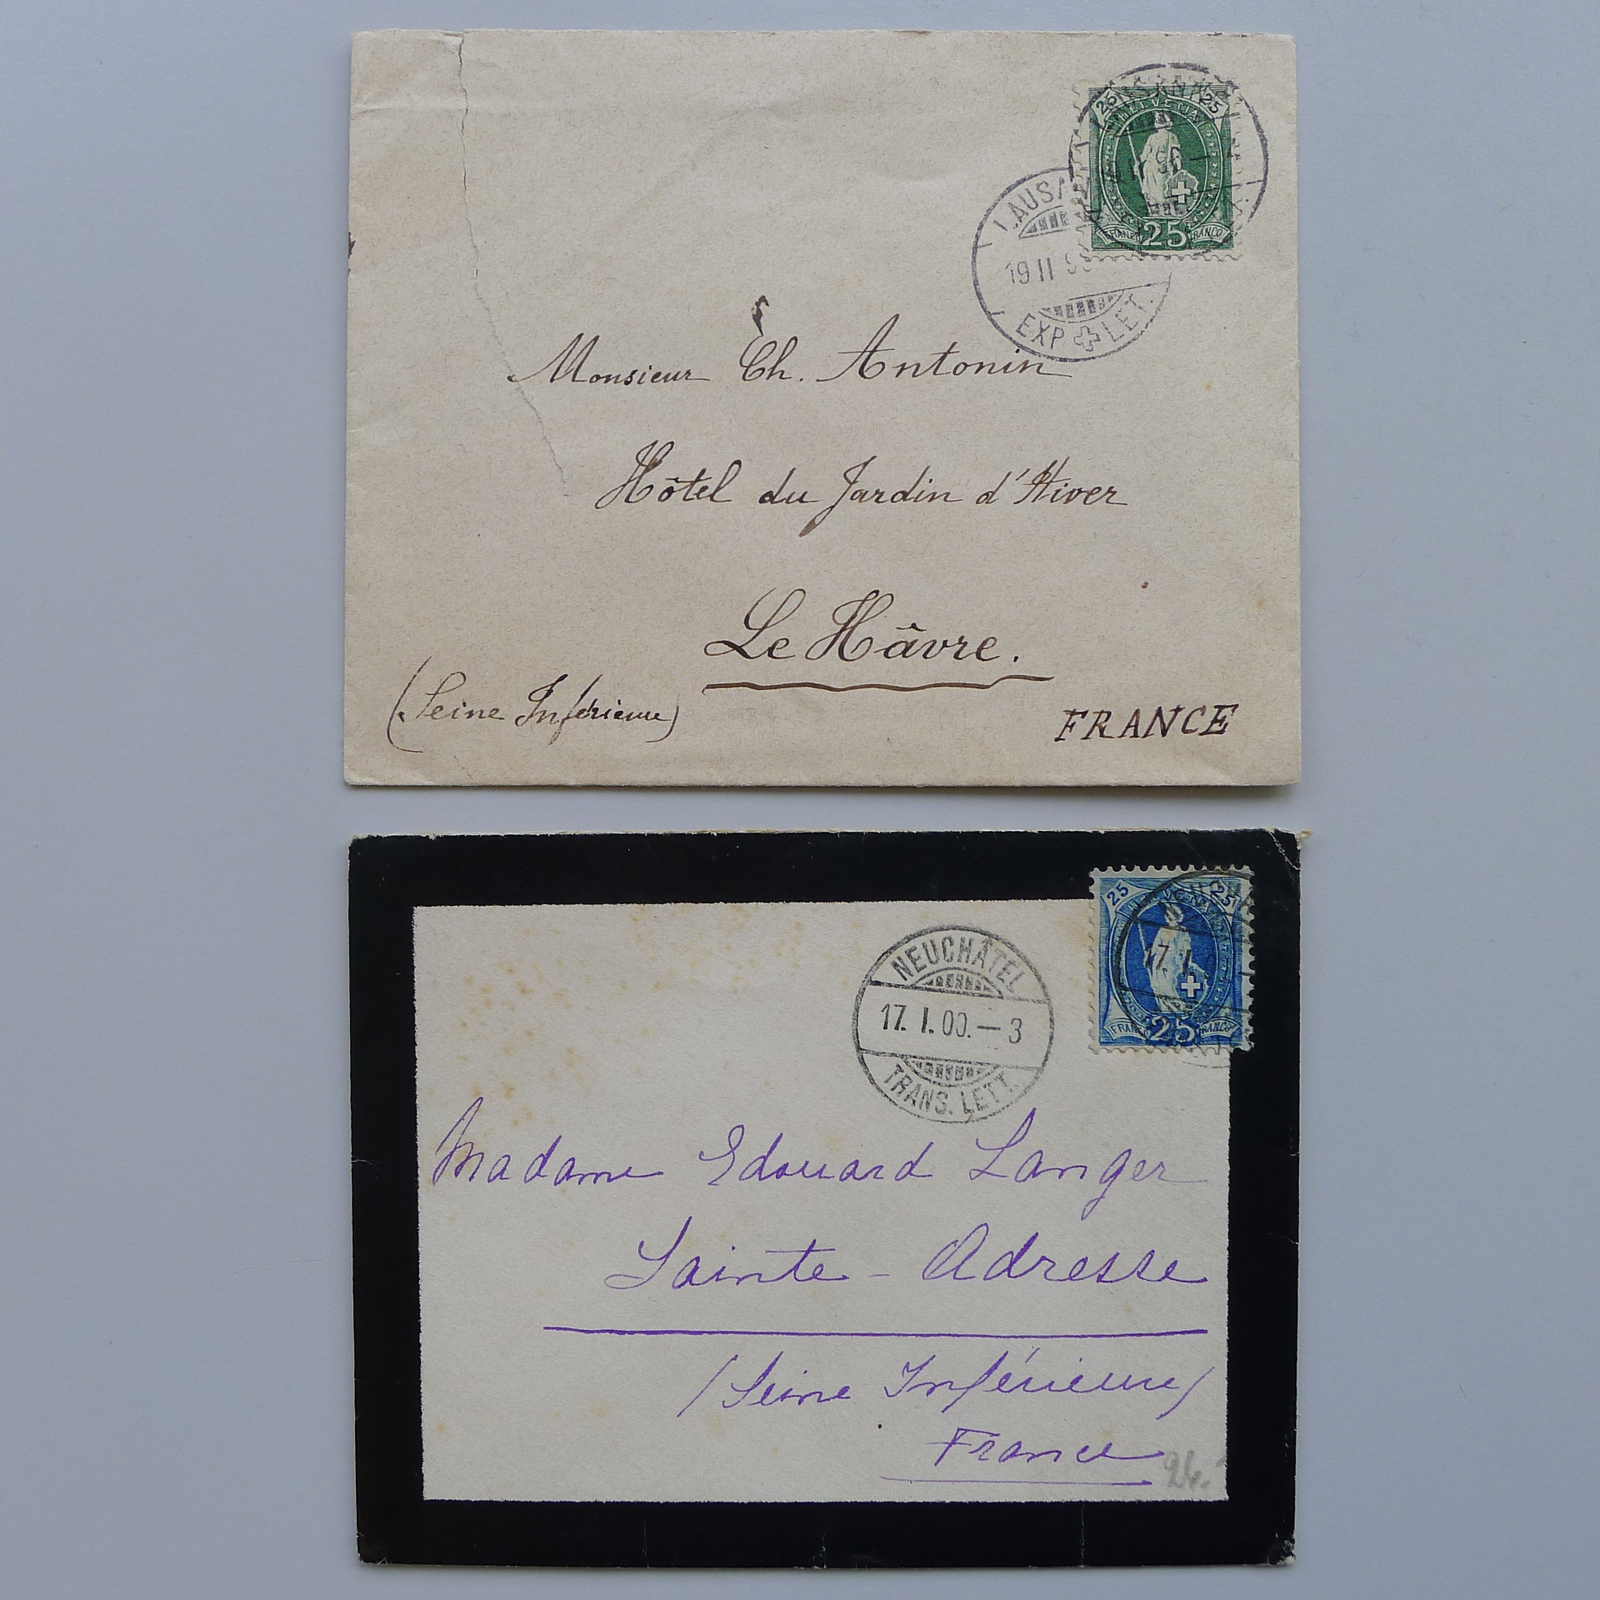 25 HELVETIA 25
FRANCO 25 FRANCO
19 II
EXP LET.
Monsieur Ch. Antonin
Hôtel du Jardin d'Hiver
Le Hâvre.
(Seine Inférieure)
FRANCE
25 HELVETIA 25
FRANCO 25 FRANCO
17. I
NEUCHÂTEL
17. I. 00. — 3
TRANS. LETT.
Madame Edouard Langer
Sainte-Adresse
(Seine Inférieure)
France